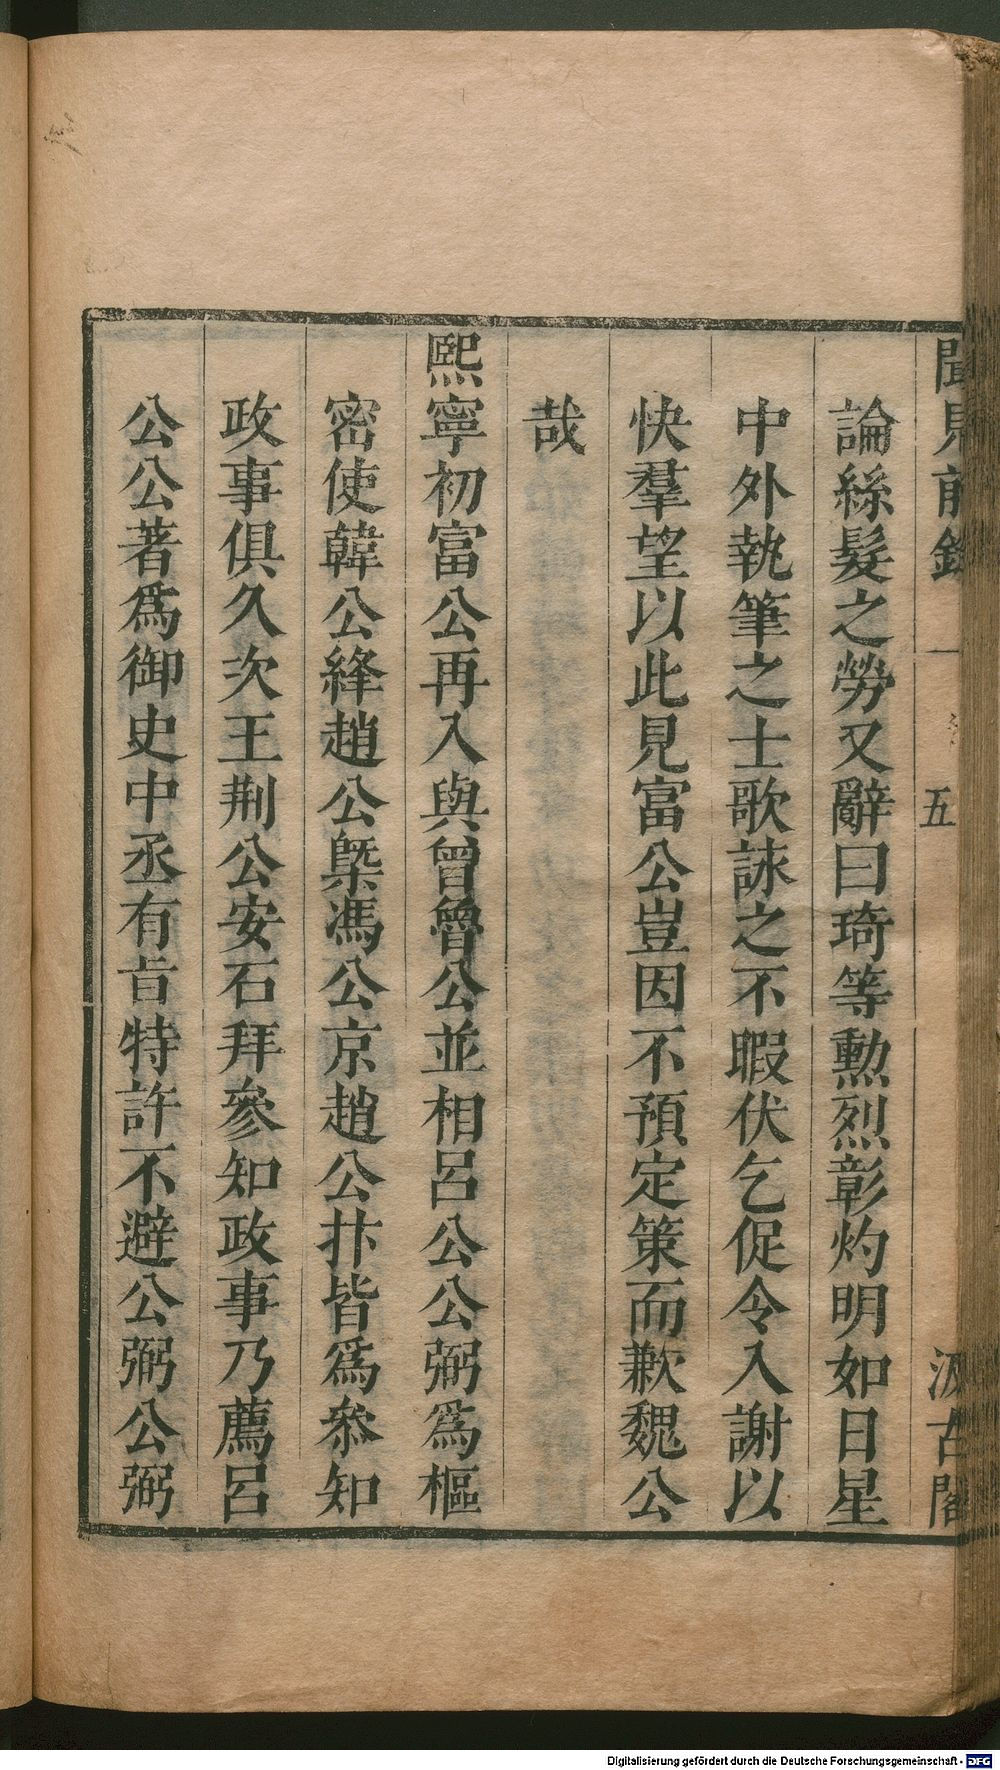 聞見前錄 一 五 汲古閣
論絲髮之勞又辭曰琦等勲烈彰灼明如日星
中外執筆之士歌詠之不暇伏乞促令入謝以
快羣望以此見富公豈因不預定策而歉魏公
哉
熙寧初富公再入與曾魯公並相呂公公弼爲樞
密使韓公絳趙公槩馮公京趙公抃皆爲叅知
政事俱久次王荆公安石拜參知政事乃薦呂
公公著爲御史中丞有旨特許不避公弼公弼
Digitalisierung gefördert durch die Deutsche Forschungsgemeinschaft - DFG